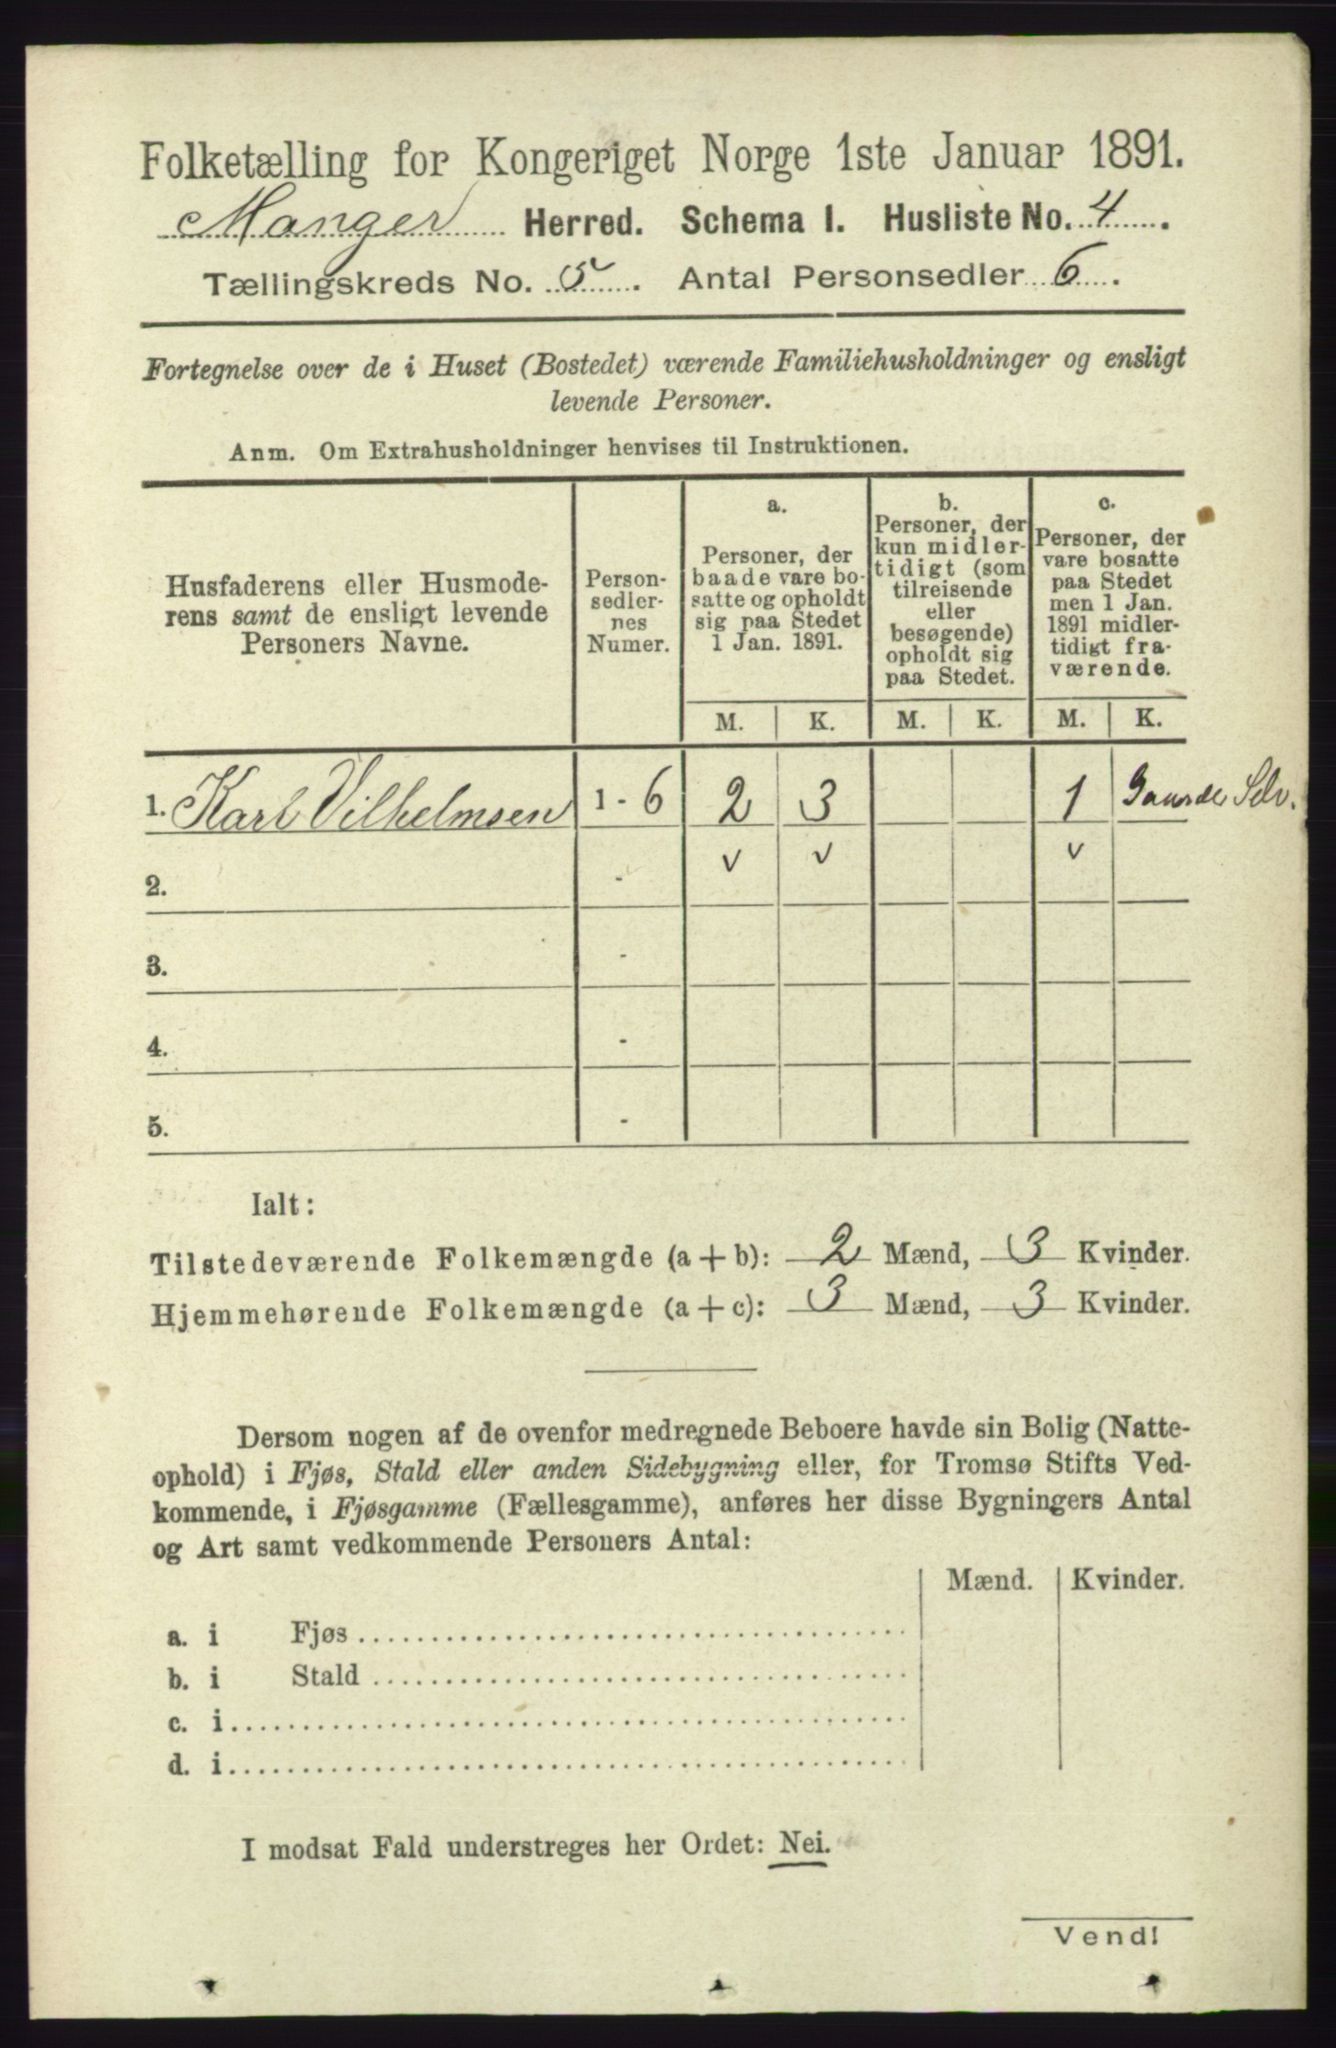 Folketælling for Kongeriget Norge 1ste Januar 1891.
Manger Herred. Schema I. Husliste No. 4.
Tællingskreds No. 5. Antal Personsedler 6.
Fortegnelse over de i Huset (Bostedet) værende Familiehusholdninger og ensligt
levende Personer.
Anm. Om Extrahusholdninger henvises til Instruktionen.
Husfaderens eller Husmode-
rens samt de ensligt levende
Personers Navne.
Person-
sedler-
nes
Numer.
a.
Personer, der
baade vare bo-
satte og opholdt
sig paa Stedet
1 Jan. 1891.
b.
Personer, der
kun midler-
tidigt (som
tilreisende
eller
besøgende)
opholdt sig
paa Stedet.
c.
Personer, der
vare bosatte
paa Stedet
men 1 Jan.
1891 midler-
tidigt fra-
værende.
M. K. M. K. M. K.
1. Karl Vilhelmsen 1 - 6 2 3 1
v v v
2. -
3. -
4. -
5. -
Ialt:
Tilstedeværende Folkemængde (a + b): 2 Mænd, 3 Kvinder.
Hjemmehørende Folkemængde (a + c): 3 Mænd, 3 Kvinder.
Dersom nogen af de ovenfor medregnede Beboere havde sin Bolig (Natte-
ophold) i Fjøs, Stald eller anden Sidebygning eller, for Tromsø Stifts Ved-
kommende, i Fjøsgamme (Fællesgamme), anføres her disse Bygningers Antal
og Art samt vedkommende Personers Antal:
Mænd. Kvinder.
a. i Fjøs
b. i Stald
c. i
d. i
I modsat Fald understreges her Ordet: Nei.
Vend!